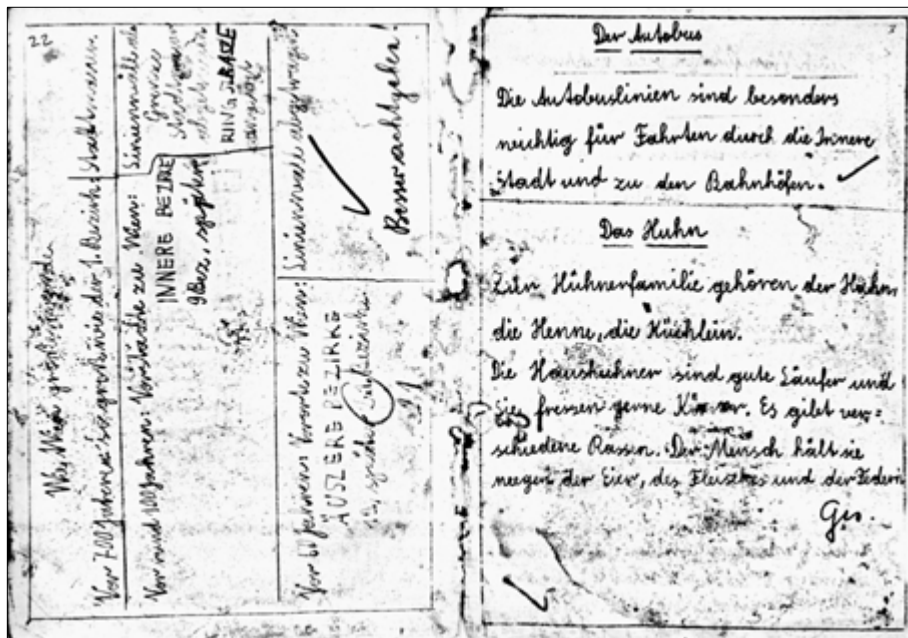 22
Wie Wien größer wurde
Vor 700 Jahren so groß wie der 1. Bezirk: Stadtmauer.
Vor rund 100 Jahren: Vorstädte zu Wien:
INNERE BEZIRKE
9 Bez., später
Linienwall als
Grenze
Stadtmauer
RINGSTRASZE
Vor 60 Jahren: Vororte zu Wien: Linienwall abgetragen
ÄUSZERE BEZIRKE
Besser achtgeben!
Der Autobus
Die Autobuslinien sind besonders
wichtig für Fahrten durch die Innere
Stadt und zu den Bahnhöfen.
Das Huhn
Zur Hühnerfamilie gehören der Hahn,
die Henne, die Küchlein.
Die Haushühner sind gute Läufer und
Sie fressen gerne Körner. Es gibt ver=
schiedene Rassen. Der Mensch hält sie
wegen der Eier, des Fleisches und der Federn